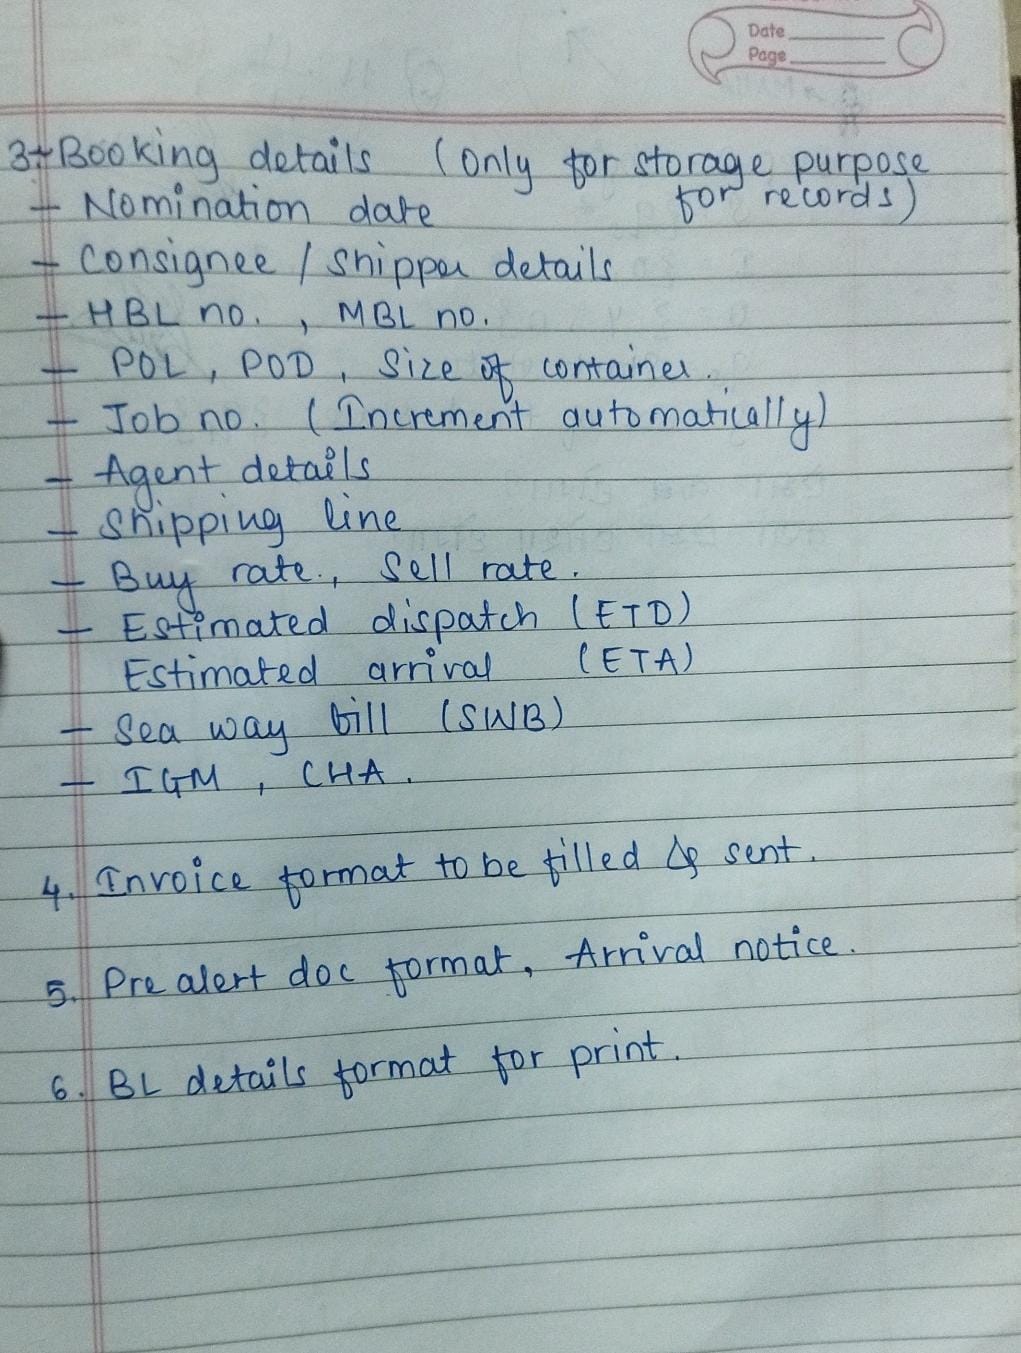 Date
Page
3. Booking details (Only for storage purpose
for records)
- Nomination date
- Consignee / Shipper details
- HBL no. , MBL no.
- POL , POD , Size of container.
- Job no. (Increment automatically)
- Agent details
- Shipping line
- Buy rate., Sell rate.
- Estimated dispatch (ETD)
Estimated arrival (ETA)
- Sea way bill (SWB)
- IGM , CHA.
4. Invoice format to be filled & sent.
5. Pre alert doc format, Arrival notice.
6. BL details format for print.